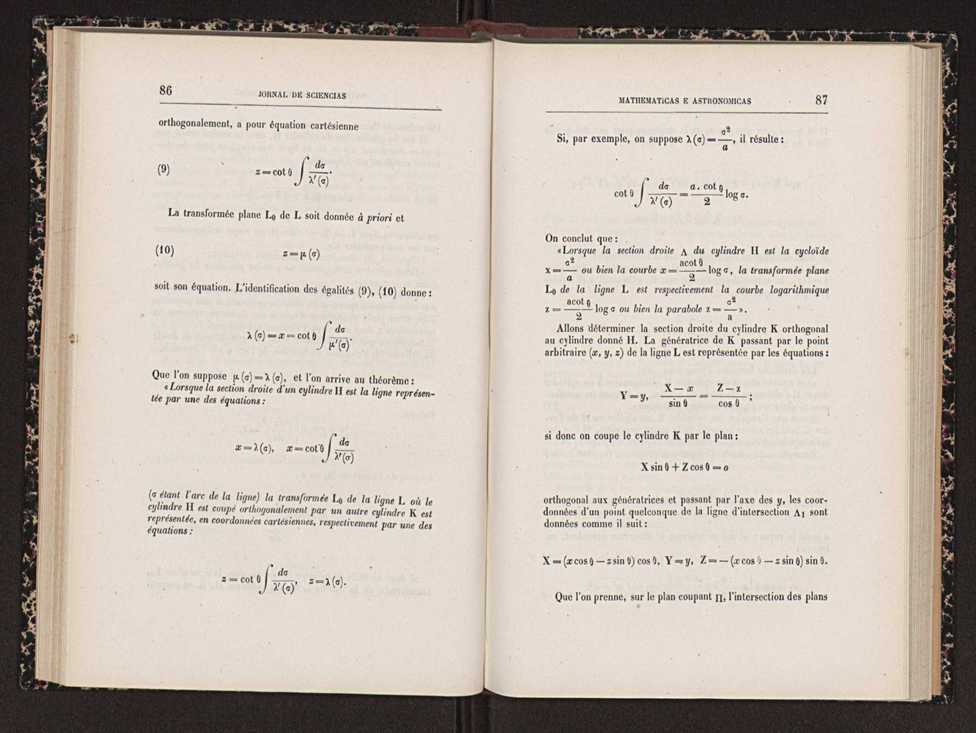 86
JORNAL DE SCIENCIAS
orthogonalement, a pour équation cartésienne
(9) z = cot θ ∫ dσ / λ′(σ).
La transformée plane L₀ de L soit donnée à priori et
(10) z = μ (σ)
soit son équation. L'identification des égalités (9), (10) donne :
λ (σ) = x = cot θ ∫ dσ / μ′(σ).
Que l'on suppose μ (σ) = λ (σ), et l'on arrive au théorème :
«Lorsque la section droite d'un cylindre H est la ligne représen-
tée par une des équations :
x = λ (σ), x = cot θ ∫ dσ / λ′(σ)
(σ étant l'arc de la ligne) la transformée L₀ de la ligne L où le
cylindre H est coupé orthogonalement par un autre cylindre K est
représentée, en coordonnées cartésiennes, respectivement par une des
équations :
z = cot θ ∫ dσ / λ′(σ), z = λ (σ).
MATHEMATICAS E ASTRONOMICAS
87
Si, par exemple, on suppose λ (σ) = σ² / a, il résulte :
cot θ ∫ dσ / λ′(σ) = a . cot θ / 2 log σ.
On conclut que :
«Lorsque la section droite Λ du cylindre H est la cycloïde
x = σ² / a ou bien la courbe x = a cot θ / 2 log σ, la transformée plane
L₀ de la ligne L est respectivement la courbe logarithmique
z = a cot θ / 2 log σ ou bien la parabole z = σ² / a ».
Allons déterminer la section droite du cylindre K orthogonal
au cylindre donné H. La génératrice de K passant par le point
arbitraire (x, y, z) de la ligne L est représentée par les équations :
Y = y, X — x / sin θ = Z — z / cos θ ;
si donc on coupe le cylindre K par le plan :
X sin θ + Z cos θ = o
orthogonal aux génératrices et passant par l'axe des y, les coor-
données d'un point quelconque de la ligne d'intersection Λ₁ sont
données comme il suit :
X = (x cos θ — z sin θ) cos θ, Y = y, Z = — (x cos θ — z sin θ) sin θ.
Que l'on prenne, sur le plan coupant Π, l'intersection des plans